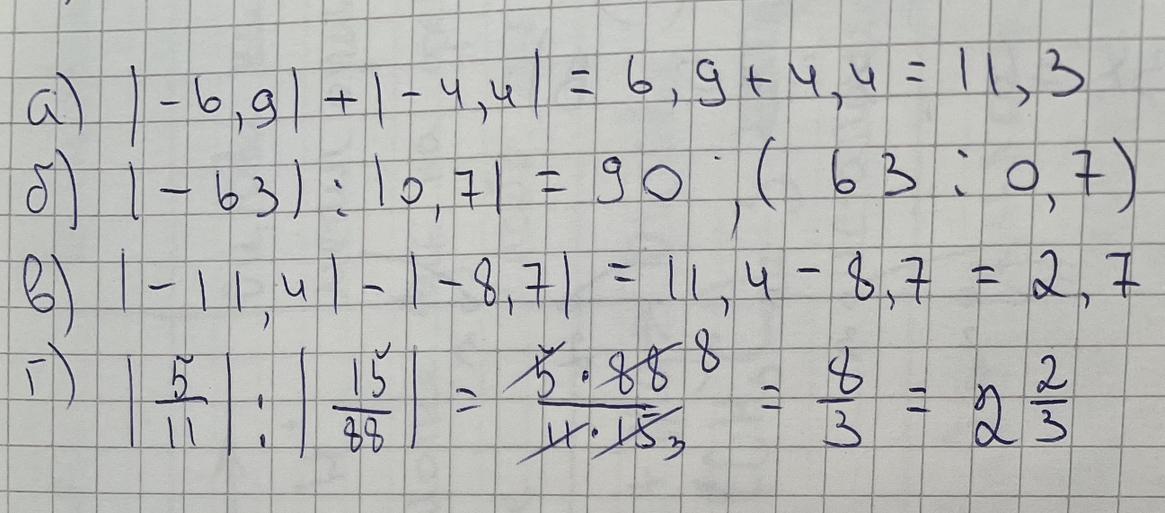 а) |-6,9|+|-4,4| = 6,9+4,4 = 11,3
б) |-63| : |0,7| = 90 ; ( 63 : 0,7)
в) |-11,4|-|-8,7| = 11,4-8,7 = 2,7
г) |5/11| : |15/88| = 5·88 8/11·15 3 = 8/3 = 2 2/3